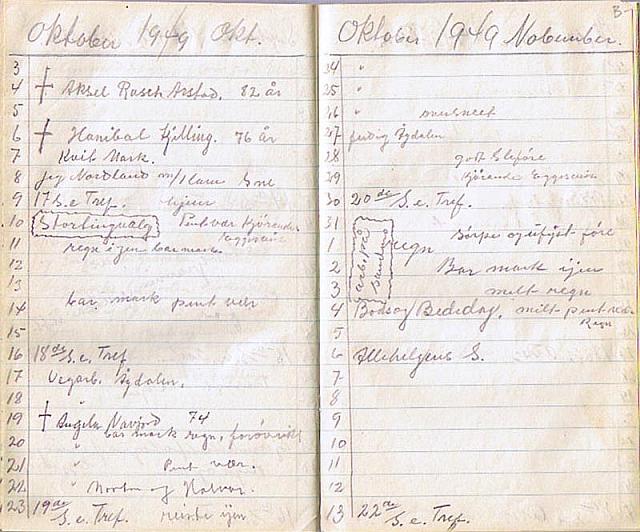 Oktober 1949 Okt.
3
4 † Aksel Rasch Arstad. 82 år
5
6 † Hanibal Fjelling. 76 år
7 Kvit Mark.
8 Jeg Nordland m/
9 17 S.e. Tref. hjem
10 Stortingsvalg Pent vær Kjörande
11 regn igjen bar mark
12
13
14 bar mark pent vær
15
16 18de S.e. Tref
17 Vegarb. Åydalen.
18
19 † Navjord 74
20 bar mark regn,
21 " Pent vær.
22 " Morten og Halvor.
23 19de S.e. Tref. reiste igjen
Oktober 1949 November.
24 "
25 "
26 " oversneet
27 ferdig Åydalen
28 godt Sleføre
29 Kjörande
30 20de S.e. Tref.
31
1 regn
2 Bar mark igjen
3 mildt regn
4 Bods og Bededag, mildt pent vær
Regn
5
6 Allehelgens S.
7
8
9
10
11
12
13 22de S.e. Tref.